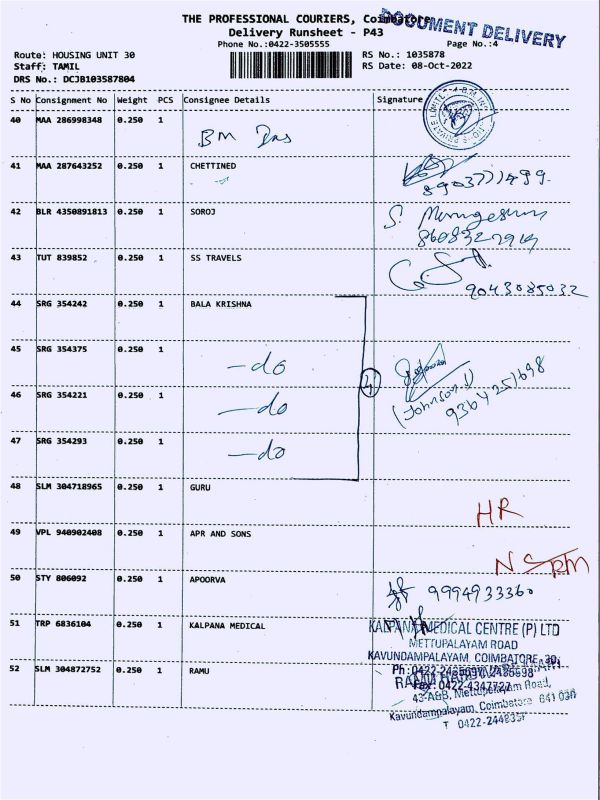 THE PROFESSIONAL COURIERS, Coimbatore
DOCUMENT DELIVERY
Delivery Runsheet - P43
Phone No.:0422-3505555
Page No.:4
Route: HOUSING UNIT 30
RS No.: 1035878
Staff: TAMIL
RS Date: 08-Oct-2022
DRS No.: DCJB103587804
S No Consignment No Weight PCS Consignee Details Signature
40 MAA 286998348 0.250 1
BM
41 MAA 287643252 0.250 1 CHETTINED
8903771499
42 BLR 4350891813 0.250 1 SOROJ
S. Murugesan
43 TUT 839852 0.250 1 SS TRAVELS
9043085032
44 SRG 354242 0.250 1 BALA KRISHNA
45 SRG 354375 0.250 1
-do
4
(Johnson.J)
9364251698
46 SRG 354221 0.250 1
-do
47 SRG 354293 0.250 1
-do
48 SLM 304718965 0.250 1 GURU
HR
49 VPL 940902408 0.250 1 APR AND SONS
50 STY 806092 0.250 1 APOORVA
9994933360
51 TRP 6836104 0.250 1 KALPANA MEDICAL
KALPANA MEDICAL CENTRE (P) LTD
METTUPALAYAM ROAD
KAVUNDAMPALAYAM, COIMBATORE-30.
52 SLM 304872752 0.250 1 RAMU
43-A&B, Mettupalayam Road,
Kavundampalayam, Coimbatore 641 030